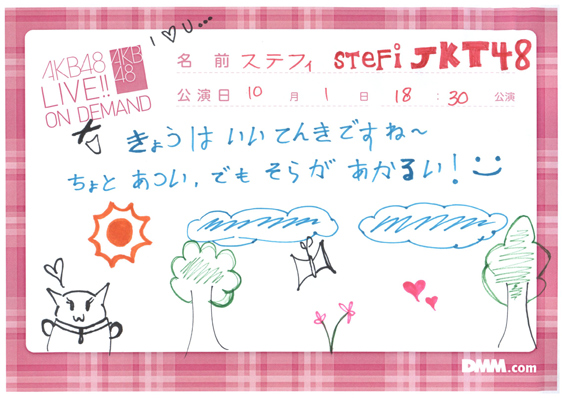 I ♡ U...
AKB48
LIVE!!
ON DEMAND
AKB
48
名前 ステフィ STEFi JKT48
公演日 10月1日 18:30 公演
きょうは いいてんきですね~
ちょと あつい, でも そらが あかるい!
DMM.com